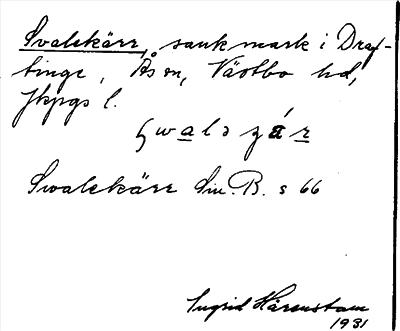 Svalekärr, sank mark i Draf-
tinge, Ås sn, Västbo hd,
Jkpgs l.
Swalekärr Lin. B. s 66
Ingrid Härenstam
1931